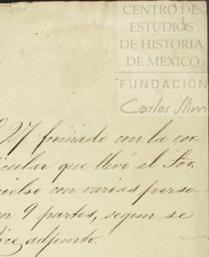 CENTRO DE
ESTUDIOS
DE HISTORIA
DE MEXICO
FUNDACIÓN
Carlos Slim
27 formado con la cor
ticular que llevó el Sor.
con varias perso
en 9 partes, segun se
dice adjunto.